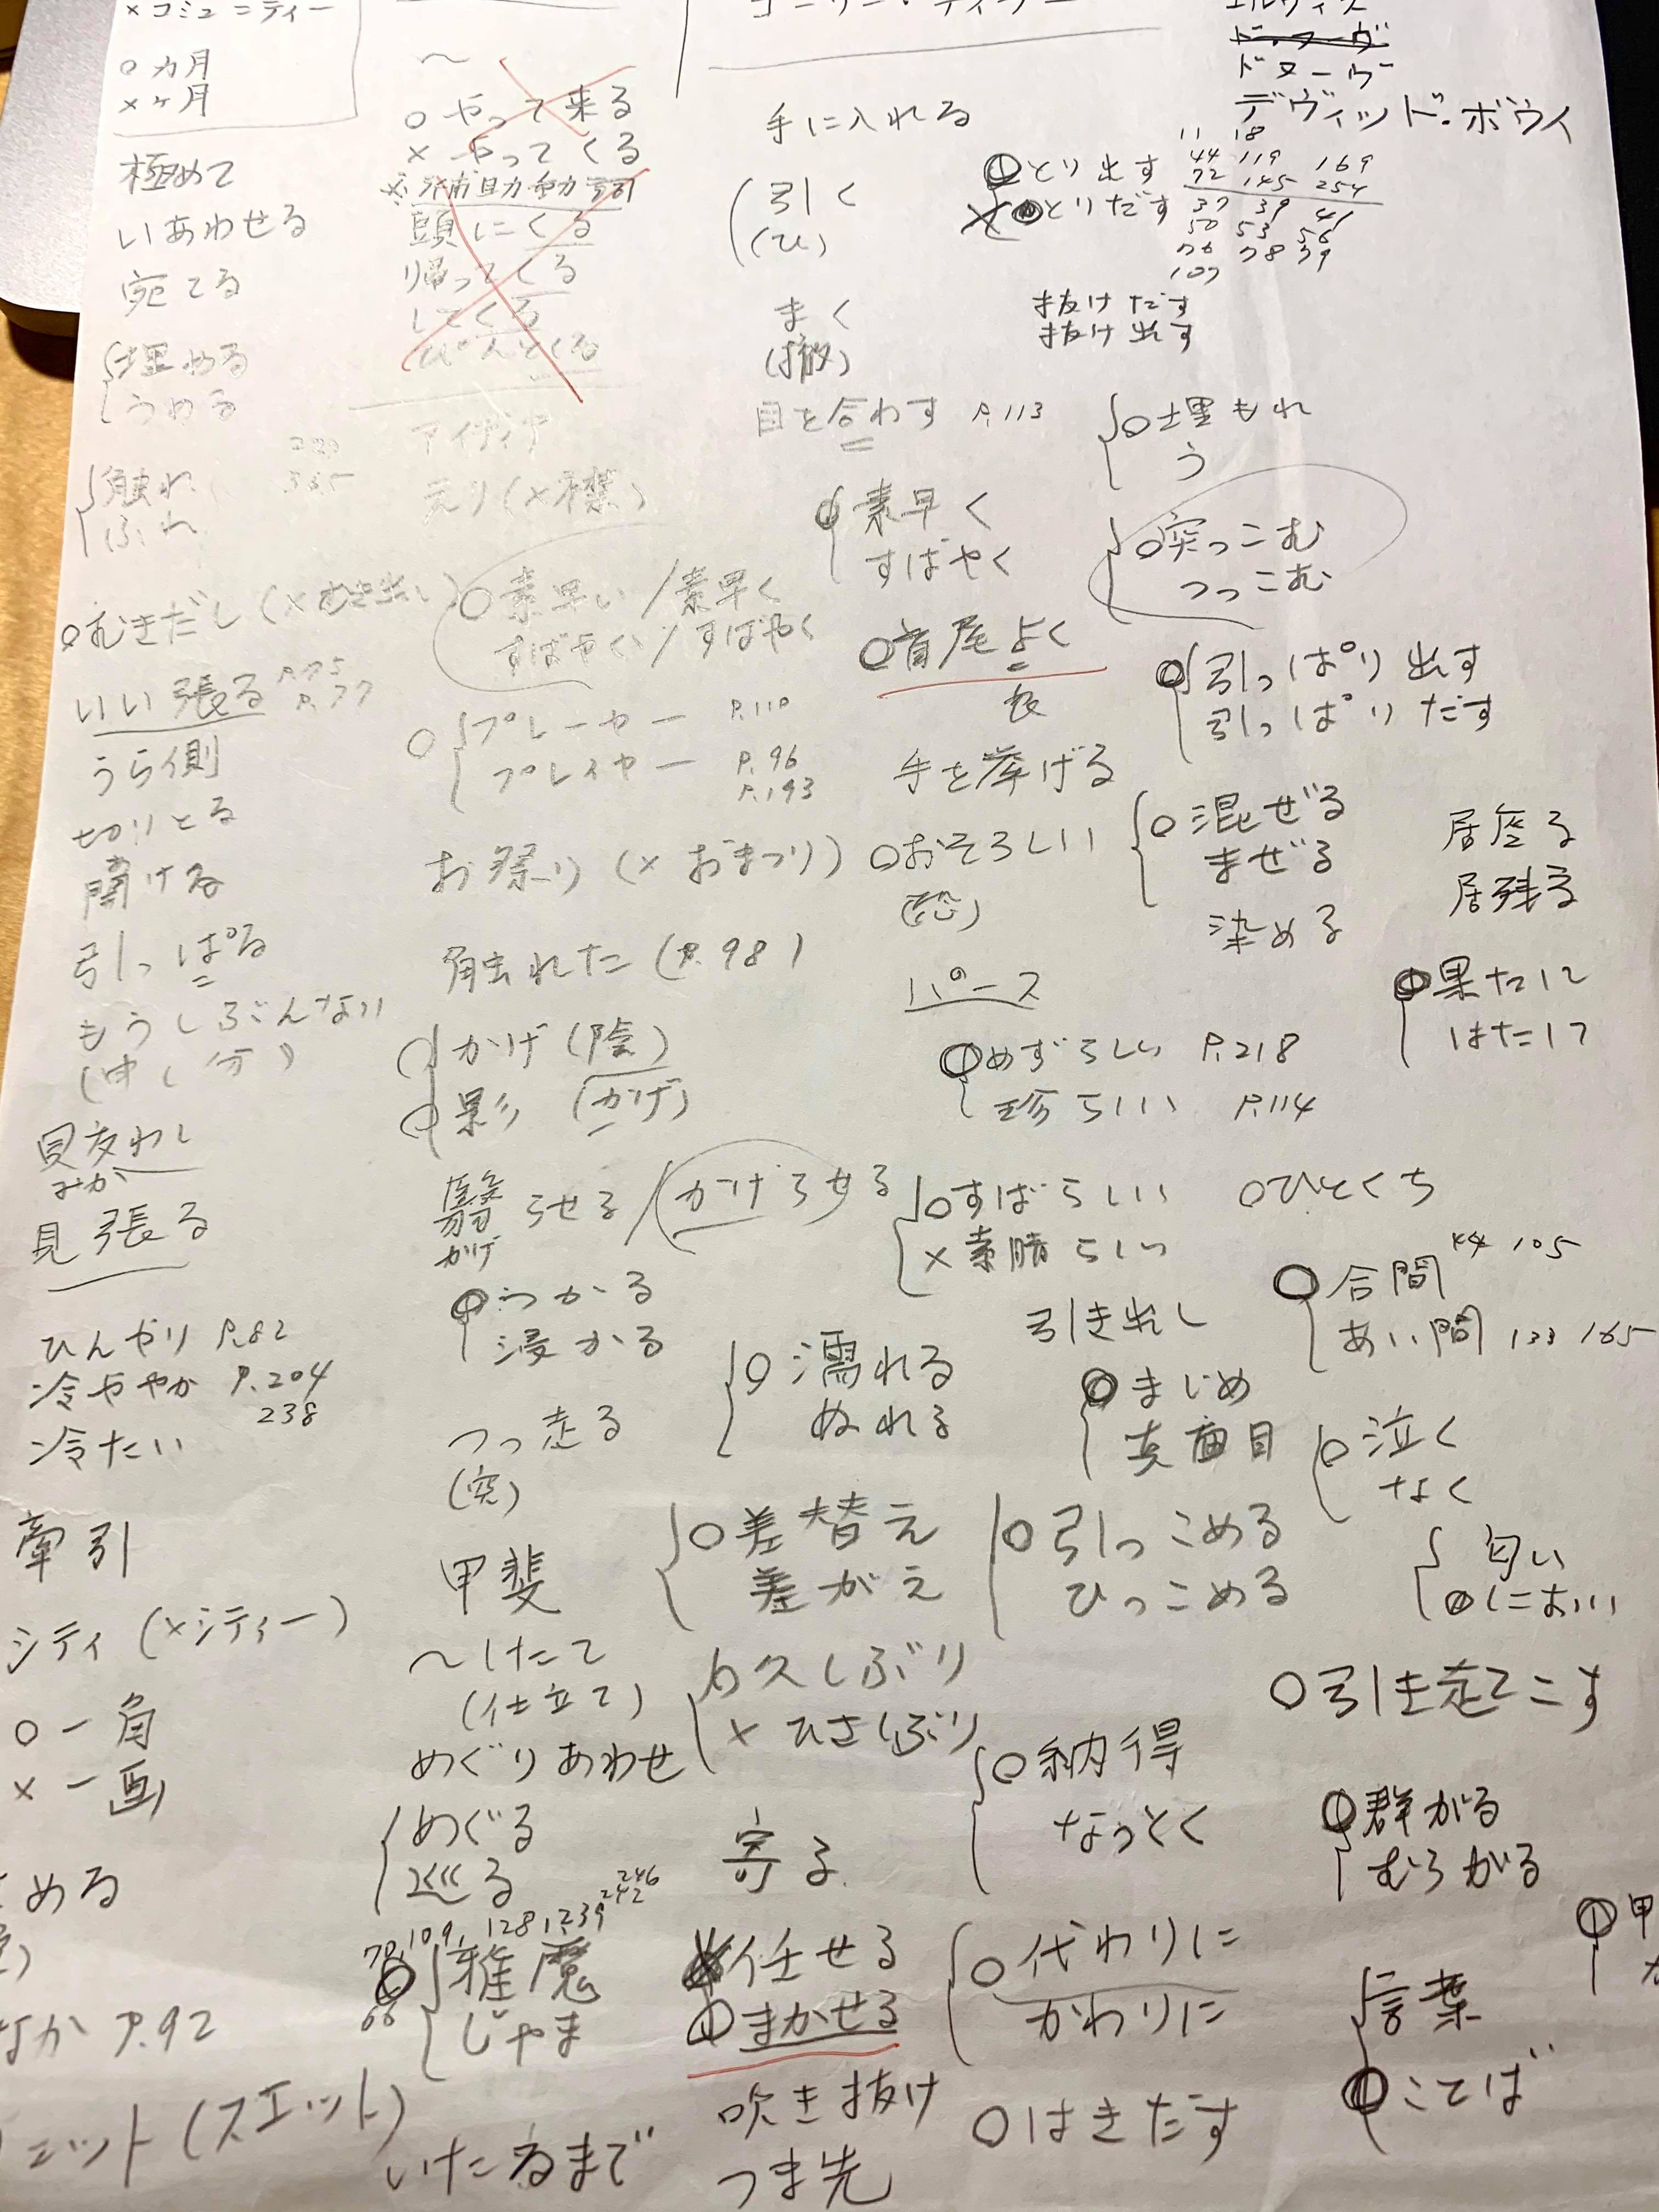 ×コミュニティー
○カ月
×ケ月
極めて
いあわせる
宛てる
埋める
うめる
触れ
ふれ
365
○むきだし(×むき出し)
いい張る P.75
P.77
うら側
切りとる
開ける
引っぱる
もうしぶんない
(申し分)
見交わし
みか
見張る
ひんやり P.82
冷ややか P.204
238
冷たい
牽引
シティ(×シティー)
○一角
×一画
める
なか P.92
ェット(スエット)
〜
○やって来る
×やってくる
頭にくる
帰ってくる
してくる
ぴんとくる
アイディア
えり(×襟)
○素早い/素早く
すばやい/すばやく
○プレーヤー P.110
プレイヤー P.96
P.193
お祭り(×おまつり)
触れた(P.98)
○かげ(陰)
○影(かげ)
翳らせる/かげらせる
かげ
○つかる
浸かる
つっ走る
(突)
甲斐
〜したて
(仕立て)
めぐりあわせ
めぐる
巡る
78,109,128,239 246
242
66
雅魔
じゃま
いたるまで
手に入れる
引く
(ひ)
まく
(撒)
目を合わす P.113
○素早く
すばやく
○首尾よく
良
手を挙げる
○おそろしい
(恐)
パース
○めずらしい P.218
珍らしい P.114
○すばらしい
×素晴らしい
引き出し
○濡れる
ぬれる
○まじめ
真面目
○差替え
差がえ
○引っこめる
ひっこめる
○久しぶり
×ひさしぶり
○納得
なっとく
寄る
任せる
○まかせる
○代わりに
かわりに
吹き抜け
つま先
○はきだす
ドヌーヴ
デヴィッド・ボウイ
11 18
44 119 169
72 145 254
37 39 41
50 53 56
76 78 79
107
○とり出す
×とりだす
抜けだす
抜け出す
○埋もれ
う
○突っこむ
つっこむ
○引っぱり出す
引っぱりだす
○混ぜる
まぜる
染める
居座る
居残る
○果たして
はたして
○ひとくち
○合間 44 105
あい間 133 165
○泣く
なく
匂い
○におい
○引き起こす
○群がる
むらがる
言葉
○ことば
○甲